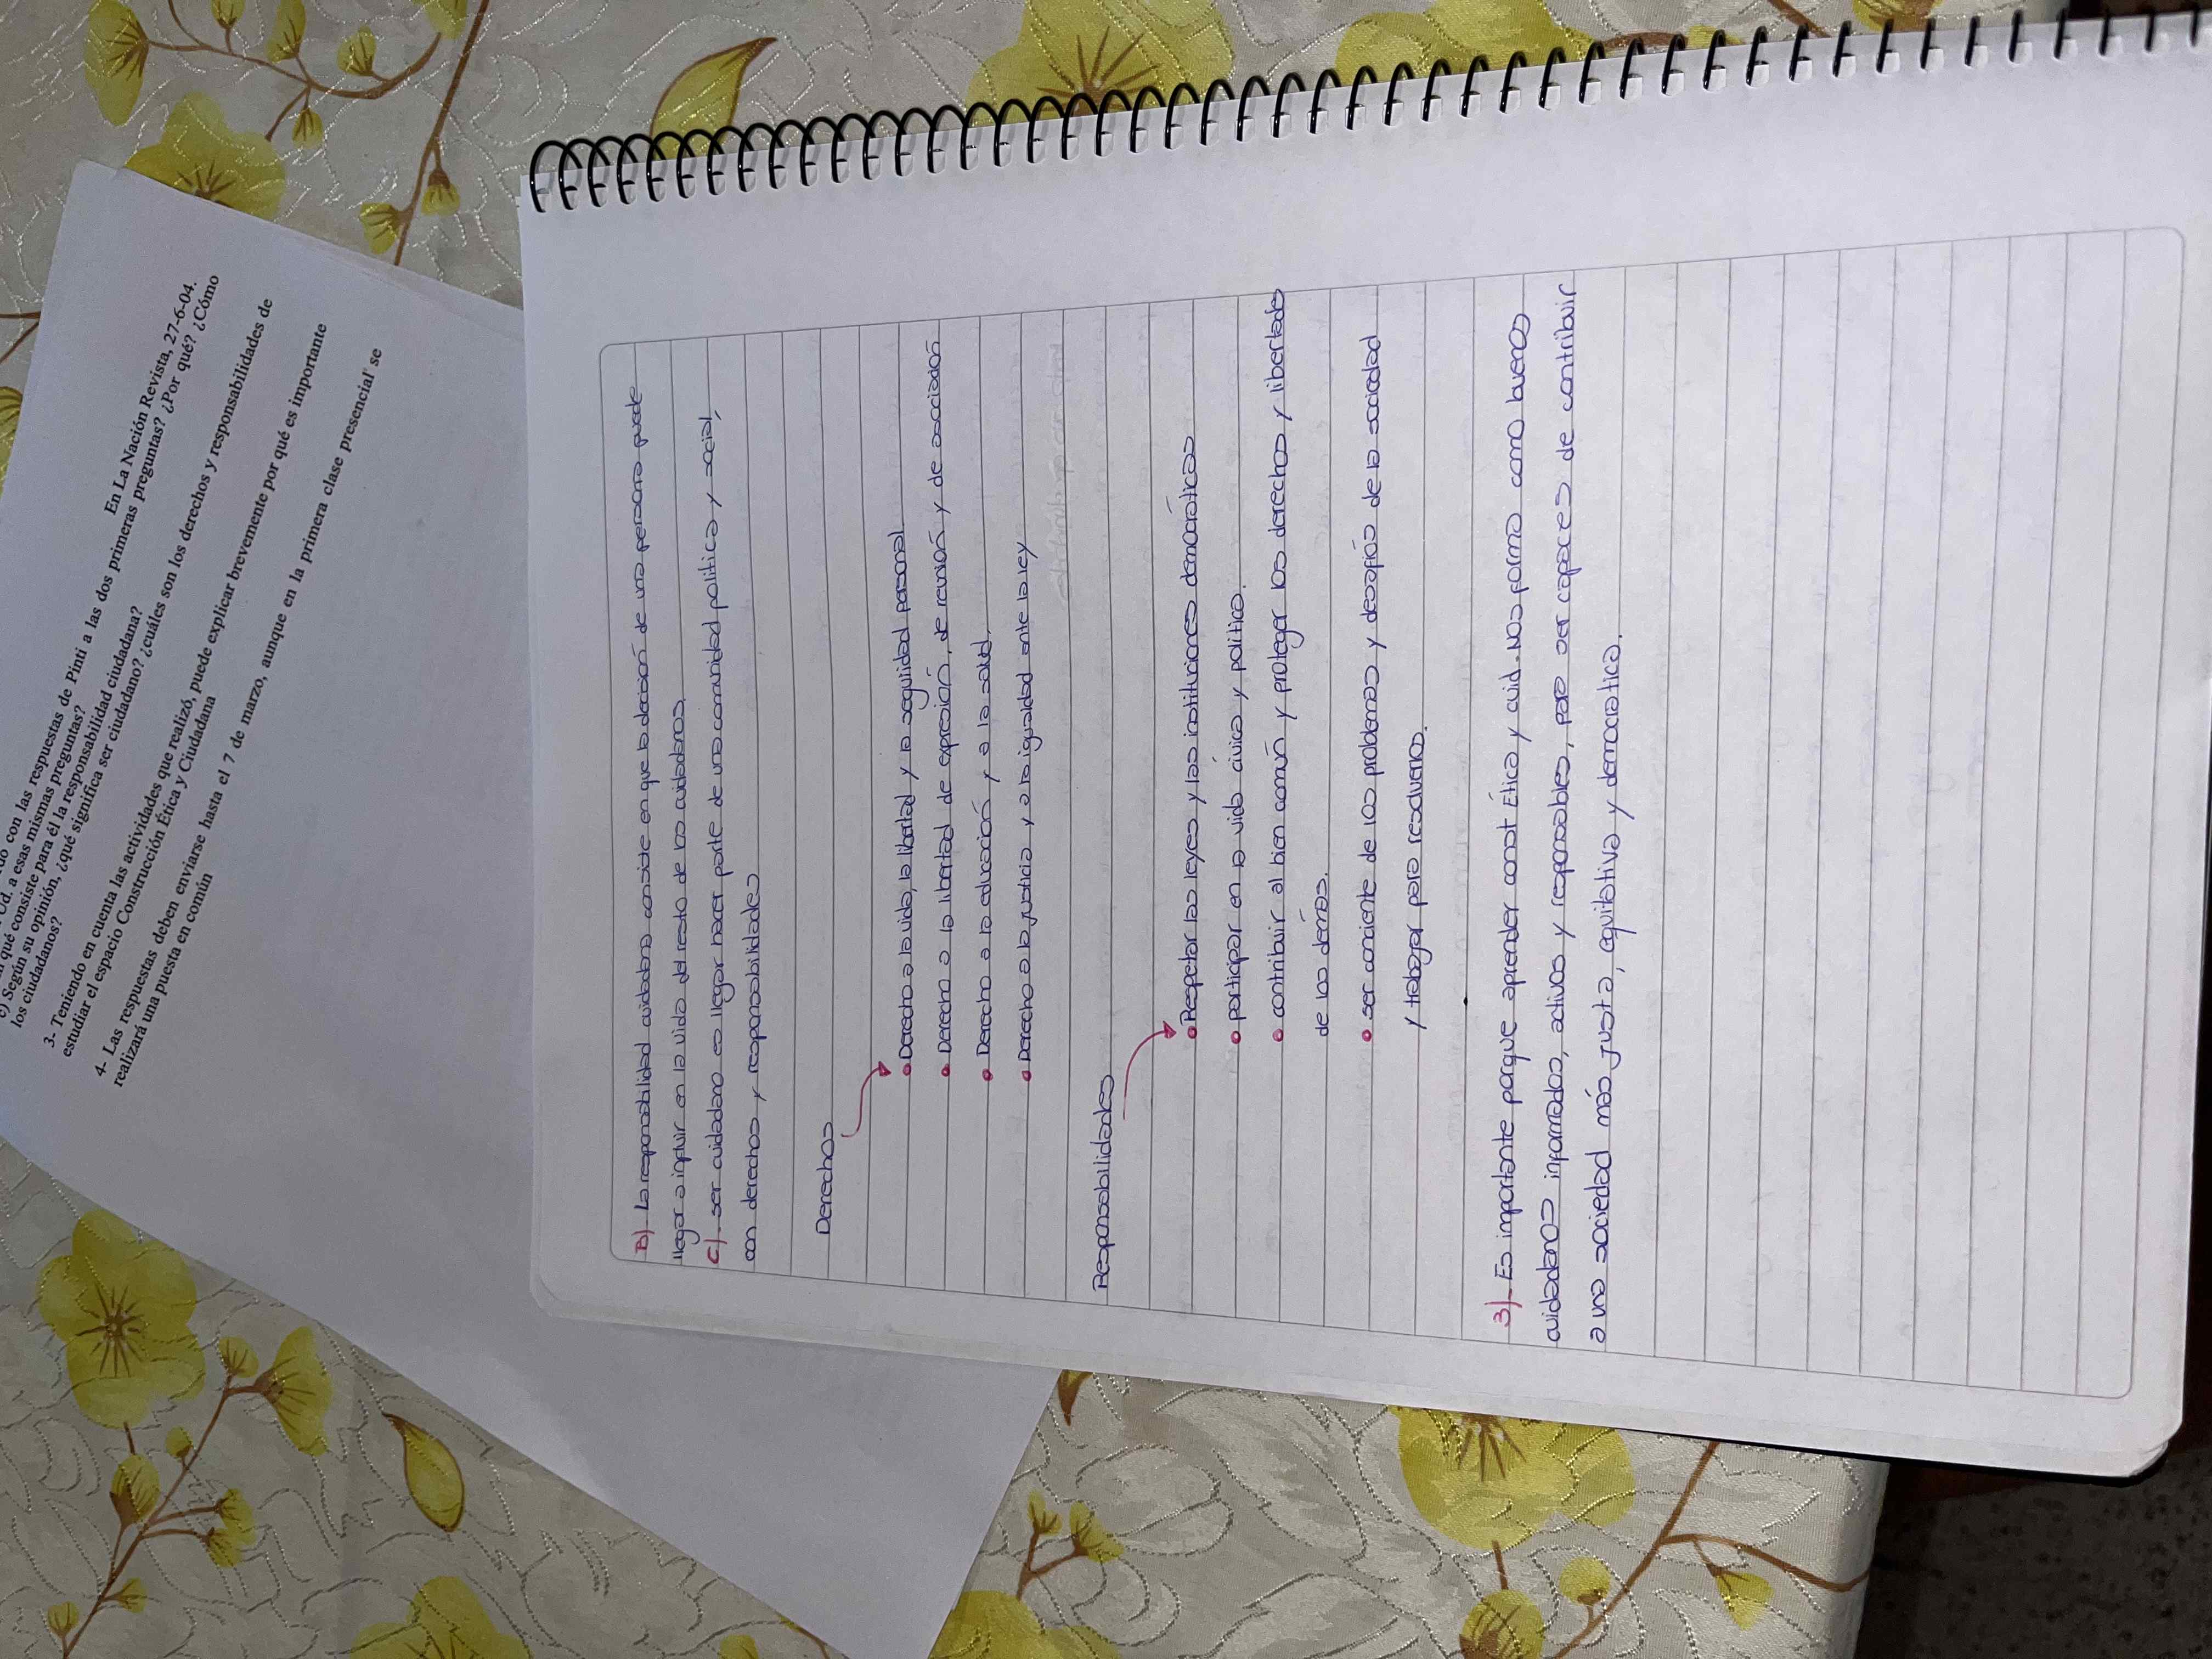 En La Nación Revista, 27-6-04.
con las respuestas de Pinti a las dos primeras preguntas? ¿Por qué? ¿Cómo
Ud. a esas mismas preguntas?
qué consiste para él la responsabilidad ciudadana?
c) Según su opinión, ¿qué significa ser ciudadano? ¿cuáles son los derechos y responsabilidades de
los ciudadanos?
3- Teniendo en cuenta las actividades que realizó, puede explicar brevemente por qué es importante
estudiar el espacio Construcción Ética y Ciudadana
4- Las respuestas deben enviarse hasta el 7 de marzo, aunque en la primera clase presencial se
realizará una puesta en común
B)- La responsabilidad ciudadana consiste en que la decisión de una persona puede
llegar a influir en la vida del resto de los ciudadanos
C)- ser ciudadano es llegar hacer parte de una comunidad política y social,
con derechos y responsabilidades
Derechos
• Derecho a la vida, la libertad y la seguidad personal
• Derecho a la libertad de expresión, de reunión y de asociación
• Derecho a la educación y a la salud.
• Derecho a la justicia y a la igualdad ante la ley
Responsabilidades
• Respetar las leyes y las instituciones democráticas
• participar en la vida cívica y política.
• contribuir al bien común y proteger los derechos y libertades
de los demás.
• ser conciente de los problemas y desafíos de la sociedad
y trabajar para resolverlos.
3)- Es importante porque aprender const Ética y ciud. Nos forma como buenos
ciudadanos informados, activos y responsables, par ser capaces de contribuir
a una sociedad más justa, equitativa y democratica.